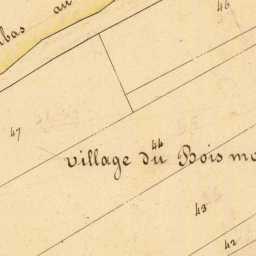 bas au
46
47
44
village du Bois mo
43
42